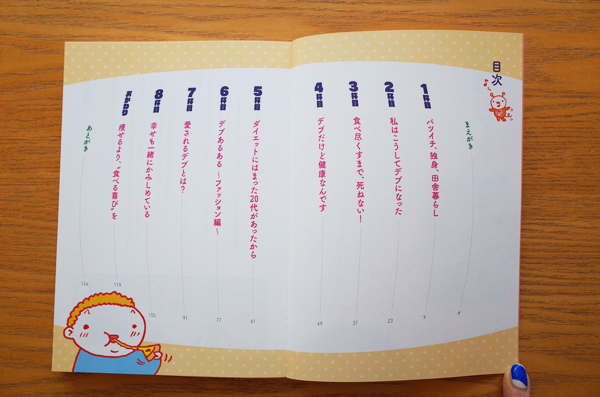 目次
まえがき
4
1杯目 バツイチ、独身、田舎暮らし
9
2杯目 私はこうしてデブになった
23
3杯目 食べ尽くすまで、死ねない!
37
4杯目 デブだけど健康なんです
49
5杯目 ダイエットにはまった20代があったから
61
6杯目 デブあるある 〜ファッション編〜
77
7杯目 愛されるデブとは?
91
8杯目 幸せも一緒にかみしめている
105
おかわり 痩せるより、“食べる喜び”を
119
あとがき